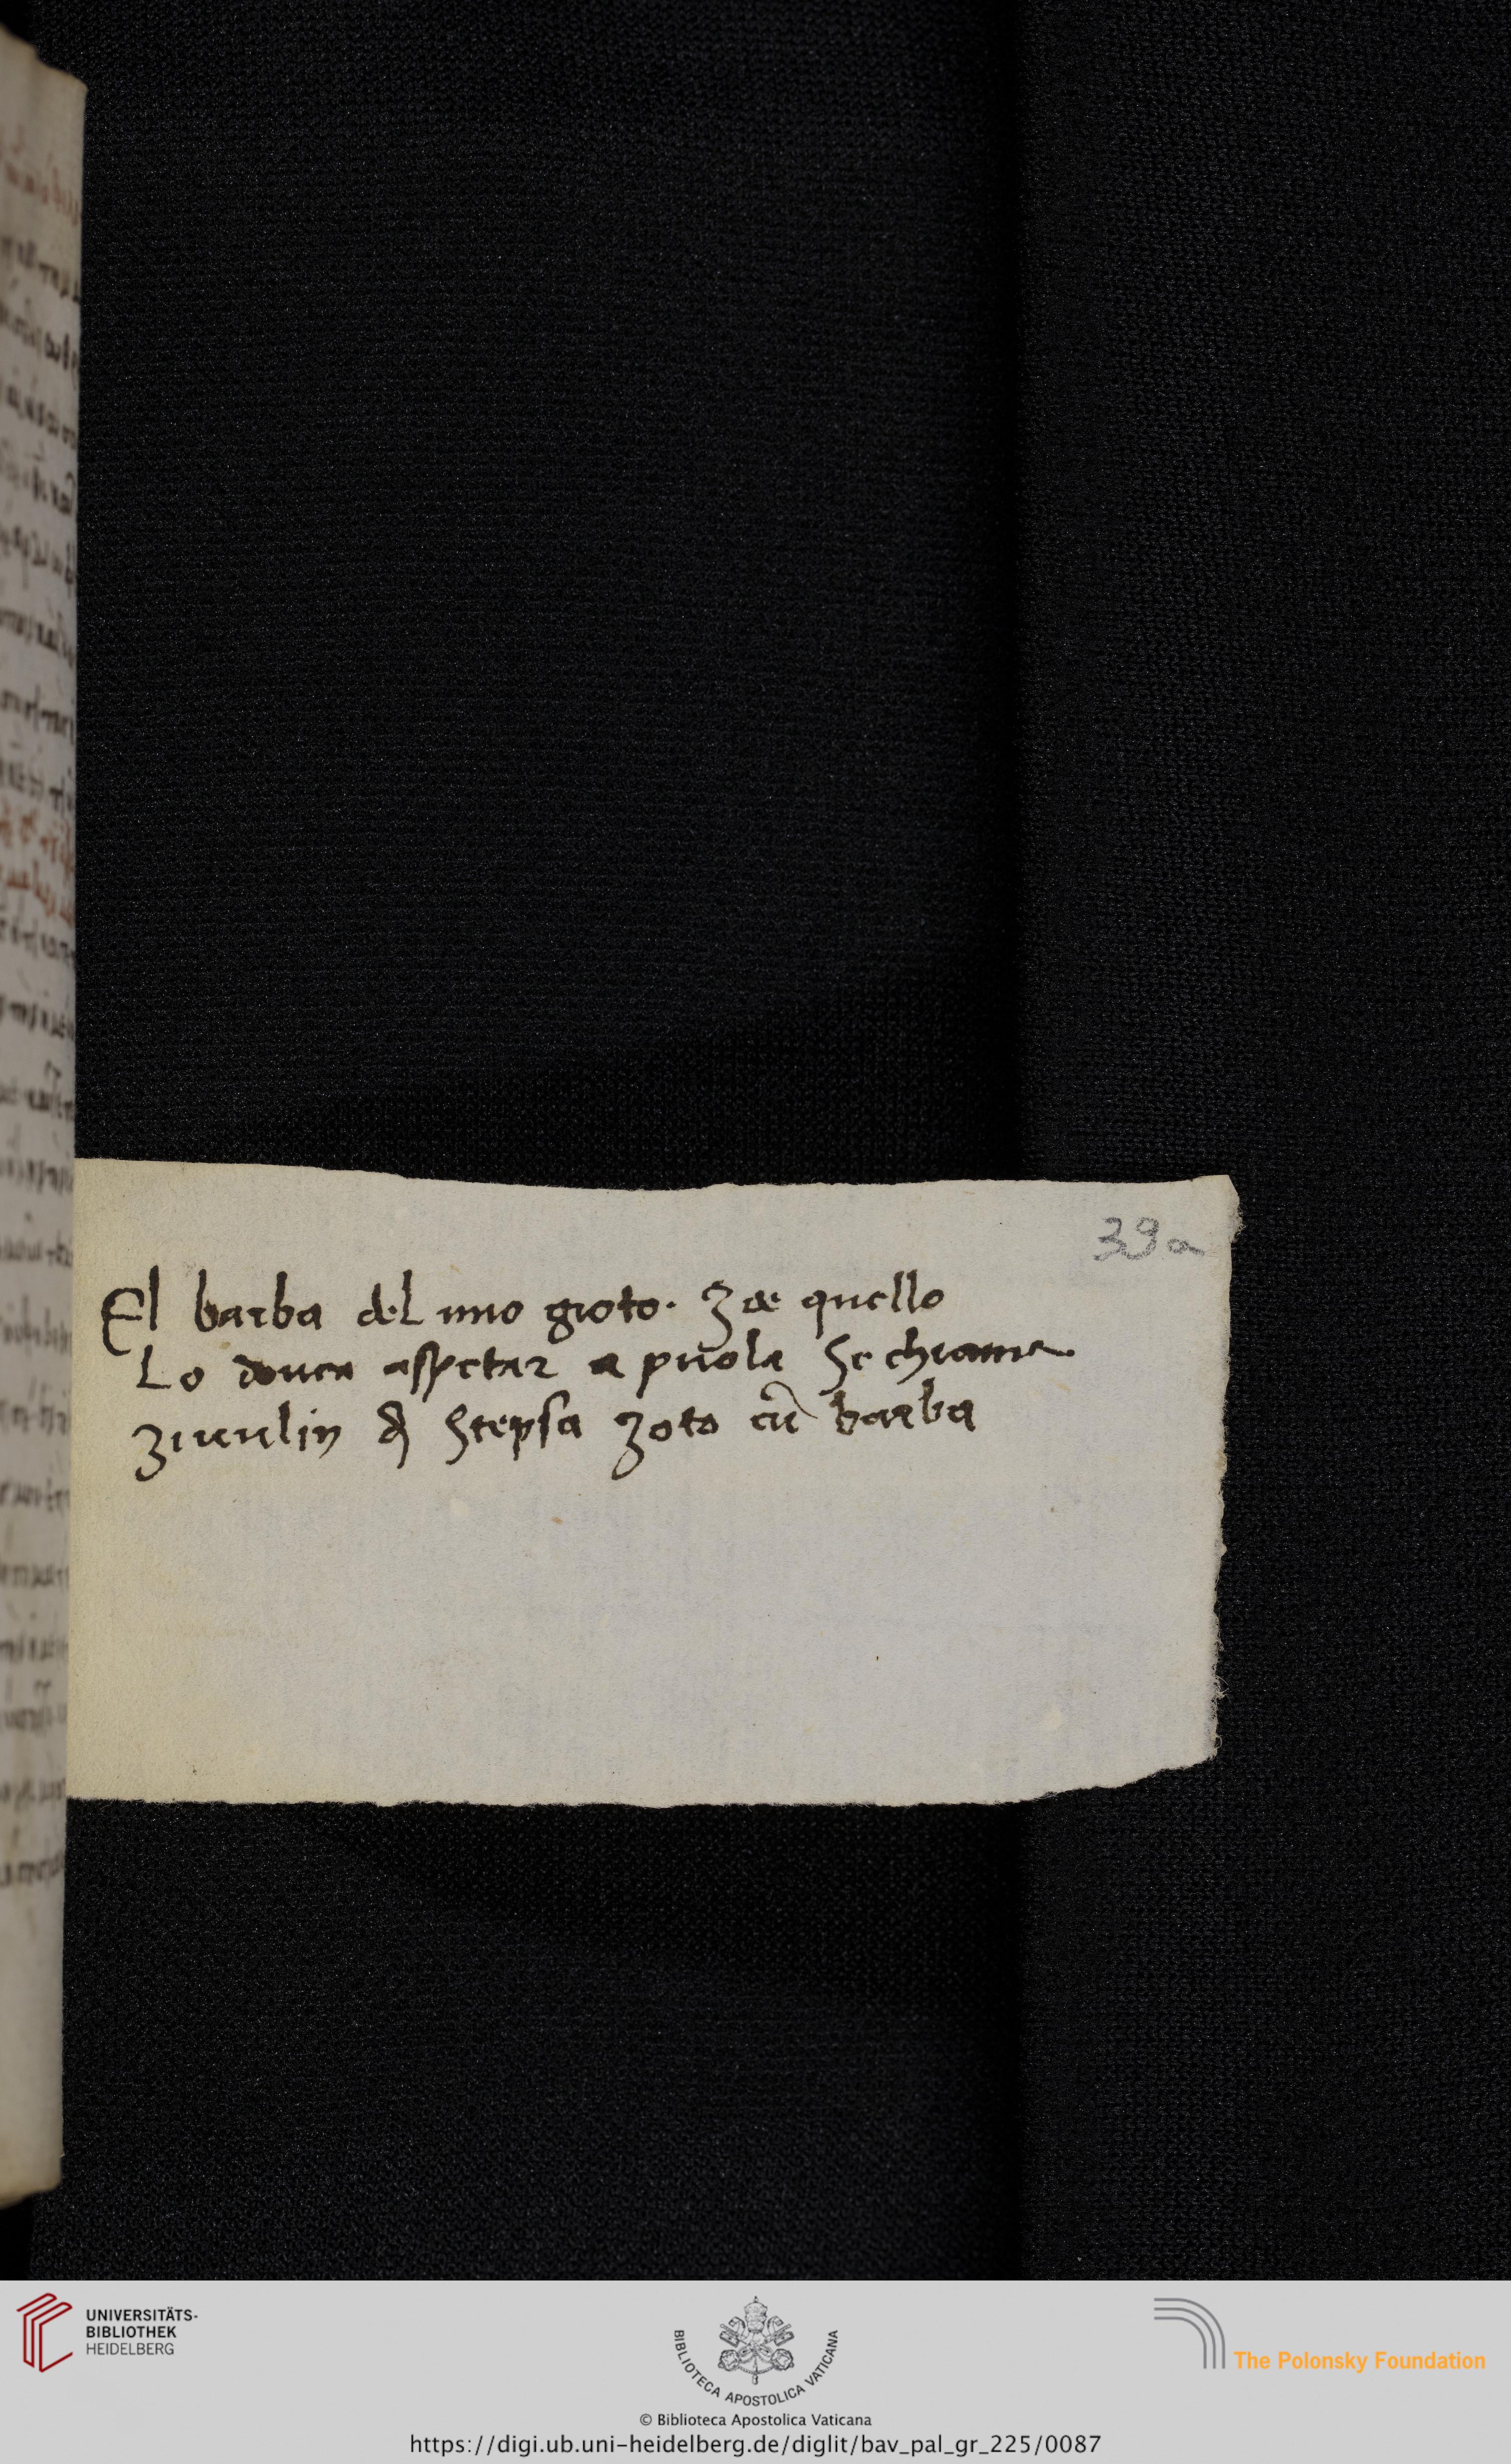 39a
El barba del mio gioto. Zoe quello
Lo douea aspetar a puola Se chiama
ziuulin & Stepsa zoto cū barba
UNIVERSITÄTS-
BIBLIOTHEK
HEIDELBERG
BIBLIOTECA APOSTOLICA VATICANA
The Polonsky Foundation
© Biblioteca Apostolica Vaticana
https://digi.ub.uni-heidelberg.de/diglit/bav_pal_gr_225/0087